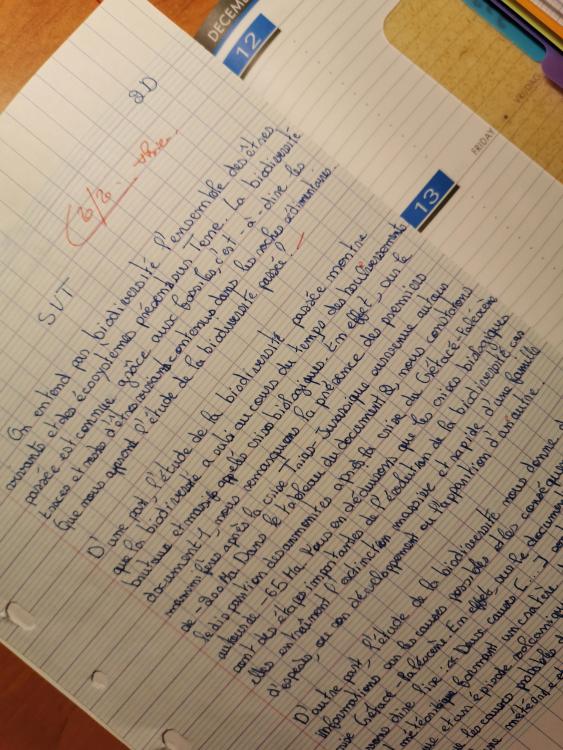 DECEM
12
13
FRIDAY
2D
20/20
SVT
On entend par biodiversité l'ensemble des êtres
vivants et des écosystèmes présents sur Terre. La biodiversité
passée est connue grâce aux fossiles, c'est-à-dire les
traces et restes d'êtres vivants contenus dans les roches sédimentaires.
Que nous apprend l'étude de la biodiversité passée?
D'une part, l'étude de la biodiversité passée montre
que la biodiversité a subi au cours du temps des bouleversements
brutaux et massifs appelés crises biologiques. En effet, sur le
document 1, nous remarquons la présence des premiers
mammifères après la crise Trias-Jurassique survenue autour
de -200 Ma. Dans le tableau du document 2, nous constatons
la disparition des ammonites après la crise du Crétacé-Paléocène
autour de -65 Ma. Nous en déduisons que les crises biologiques
sont des étapes importantes de l'évolution de la biodiversité car
elles entraînent l'extinction massive et rapide d'une famille
d'espèces, ou son développement ou l'apparition d'une autre.
D'autre part, l'étude de la biodiversité nous donne d
informations sur les causes possibles et les conséqu
ise Crétacé-Paléocène. En effet, sur le document
ons dire lire : « Deux causes [...] son
météoritique formant un cratère
ne et un épisode volcaniq
les causes possibles d
ne météorite et